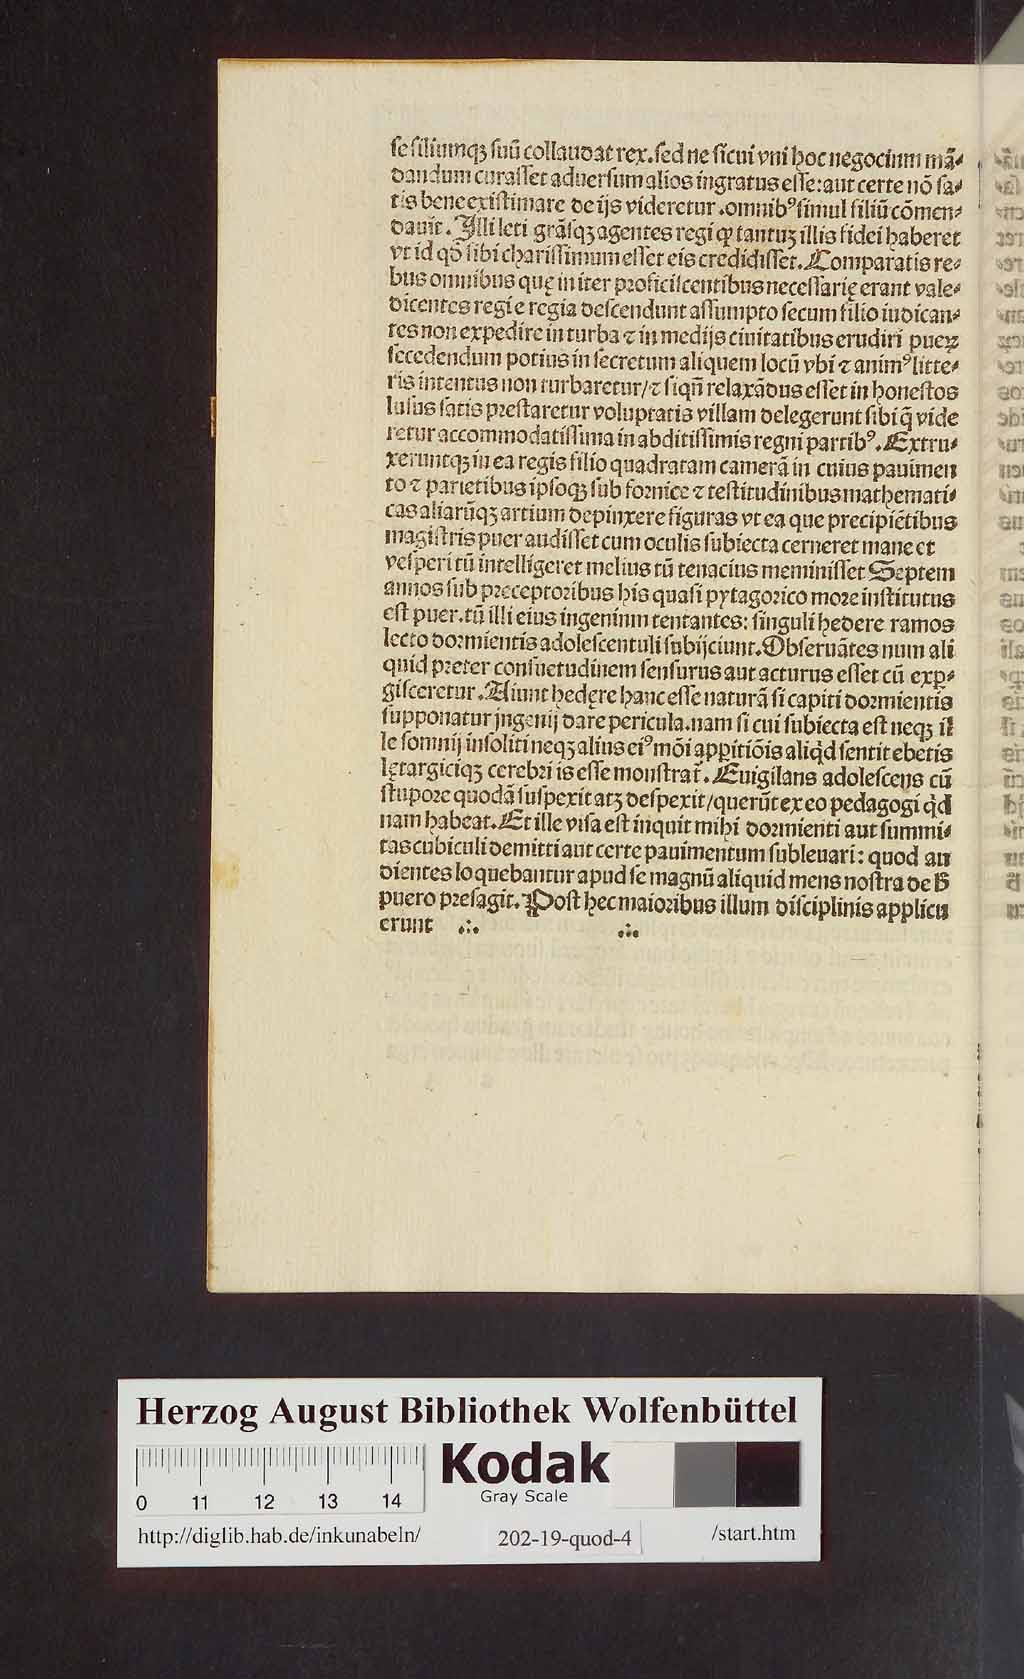 ſe filiumqꝫ ſuū collaudat rex. ſed ne ſicui vni hoc negocium mā⸗
dandum curaſſet aduerſum alios ingratus eſſe: aut certe nō ſa⸗
tis bene exiſtimare de ijs videretur. omnibꝰ ſimul filiū cōmen⸗
dauit. Illi leti grāſqꝫ agentes regi ꝙ tantuꝫ illis fidei haberet
vt id qd̄ ſibi chariſſimum eſſet eis credidiſſet. Comparatis re⸗
bus omnibus quę in iter proficiſcentibus neceſſarię erant vale⸗
dicentes regi e regia deſcendunt aſſumpto ſecum filio iudican⸗
tes non expedire in turba ⁊ in medijs ciuitatibus erudiri pueꝝ
ſecedendum potius in ſecretum aliquem locū vbi ⁊ animꝰ litte⸗
ris intentus non turbaretur/ ⁊ ſiqn̄ relaxādus eſſet in honeſtos
luſus ſatis preſtaretur voluptatis villam delegerunt ſibi q̄ vide
retur accommodatiſſima in abditiſſimis regni partibꝰ. Extru⸗
xeruntqꝫ in ea regis filio quadratam camerā in cuius pauimen
to ⁊ parietibus ipſoqꝫ ſub fornice ⁊ teſtitudinibus mathemati⸗
cas aliarūqꝫ artium depinxere figuras vt ea que precipiētibus
magiſtris puer audiſſet cum oculis ſubiecta cerneret mane et
veſperi tū intelligeret melius tū tenacius meminiſſet Septem
annos ſub preceptoribus his quaſi pytagorico more inſtitutus
eſt puer. tū illi eius ingenium tentantes: ſinguli hedere ramos
lecto dormientis adoleſcentuli ſubijciunt. Obſeruātes num ali
quid preter conſuetudinem ſenſurus aut acturus eſſet cū exp̱⸗
giſceretur. Aiunt hedęre hanc eſſe naturā ſi capiti dormientis
ſupponatur jngenij dare pericula. nam ſi cui ſubiecta eſt neqꝫ il
le ſomnij inſoliti neqꝫ alius eiꝰ mōi appitiōis aliqd̓ ſentit ebetis
lętargiciqꝫ cerebri is eſſe monſtrat̄. Euigilans adoleſcens cū
ſtupore quodā ſuſpexit atqꝫ deſpexit/ querūt ex eo pedagogi qd̓
nam habeat. Et ille viſa eſt inquit mihi dormienti aut ſummi⸗
tas cubiculi demitti aut certe pauimentum ſubleuari: quod au
dientes loquebantur apud ſe magnū aliquid mens noſtra de h̄
puero preſagit. Poſt hec maioribus illum diſciplinis applicu
erunt ∴ ∴
Herzog August Bibliothek Wolfenbüttel
Kodak
Gray Scale
0 11 12 13 14
http://diglib.hab.de/inkunabeln/ 202-19-quod-4 /start.htm